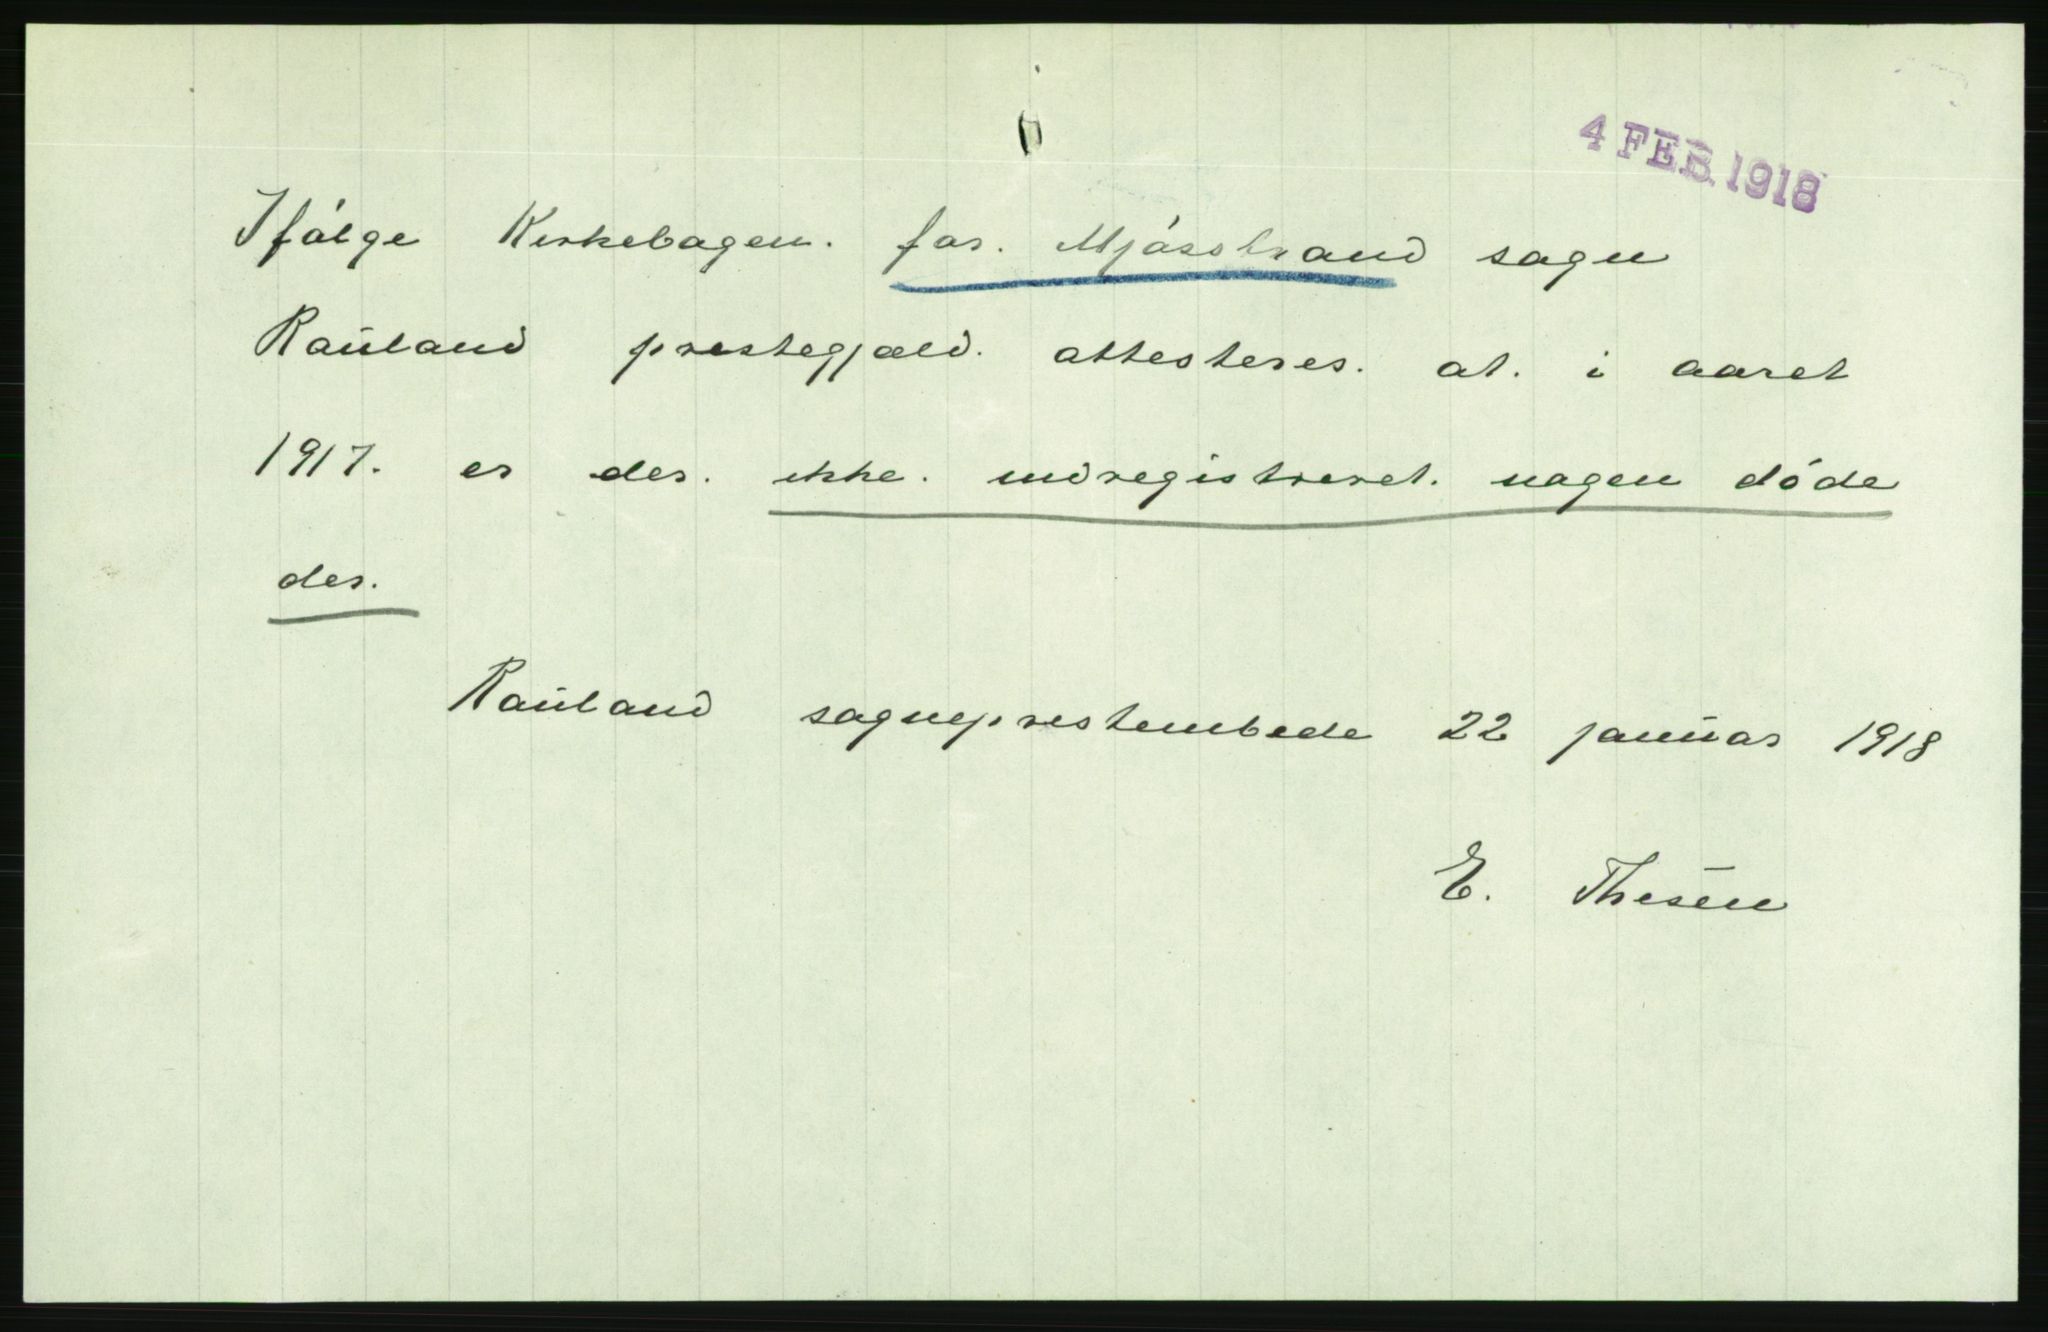 4 FEB. 1918
Ifólge Kirkebogen. for. Mjósstrand sogn
Rauland prestegjæld. attesteres. at. i aaret
1917. er der. ikke. indregistreret. nogen dóde
der.
Rauland sogneprestembede 22 januar 1918
E. Thesen